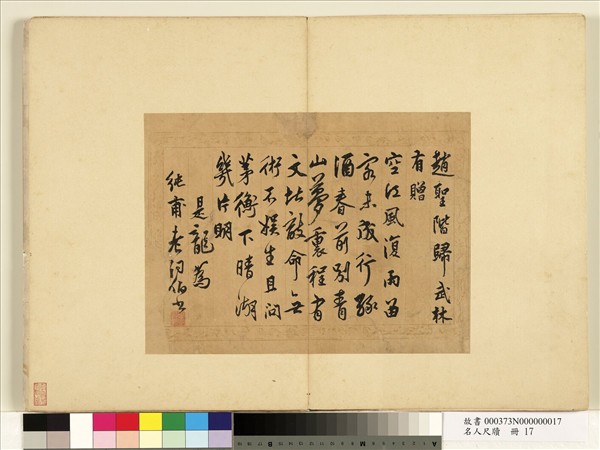 趙聖階歸武林
有贈
空江風復雨留
客未成行綠
酒春前別青
山夢裏程有
文堪敵命無
術不娛生且問
茅衡下晴湖
幾片明
是龍為
純甫老詞伯書
故書 000373N000000017
名人尺牘 冊 17